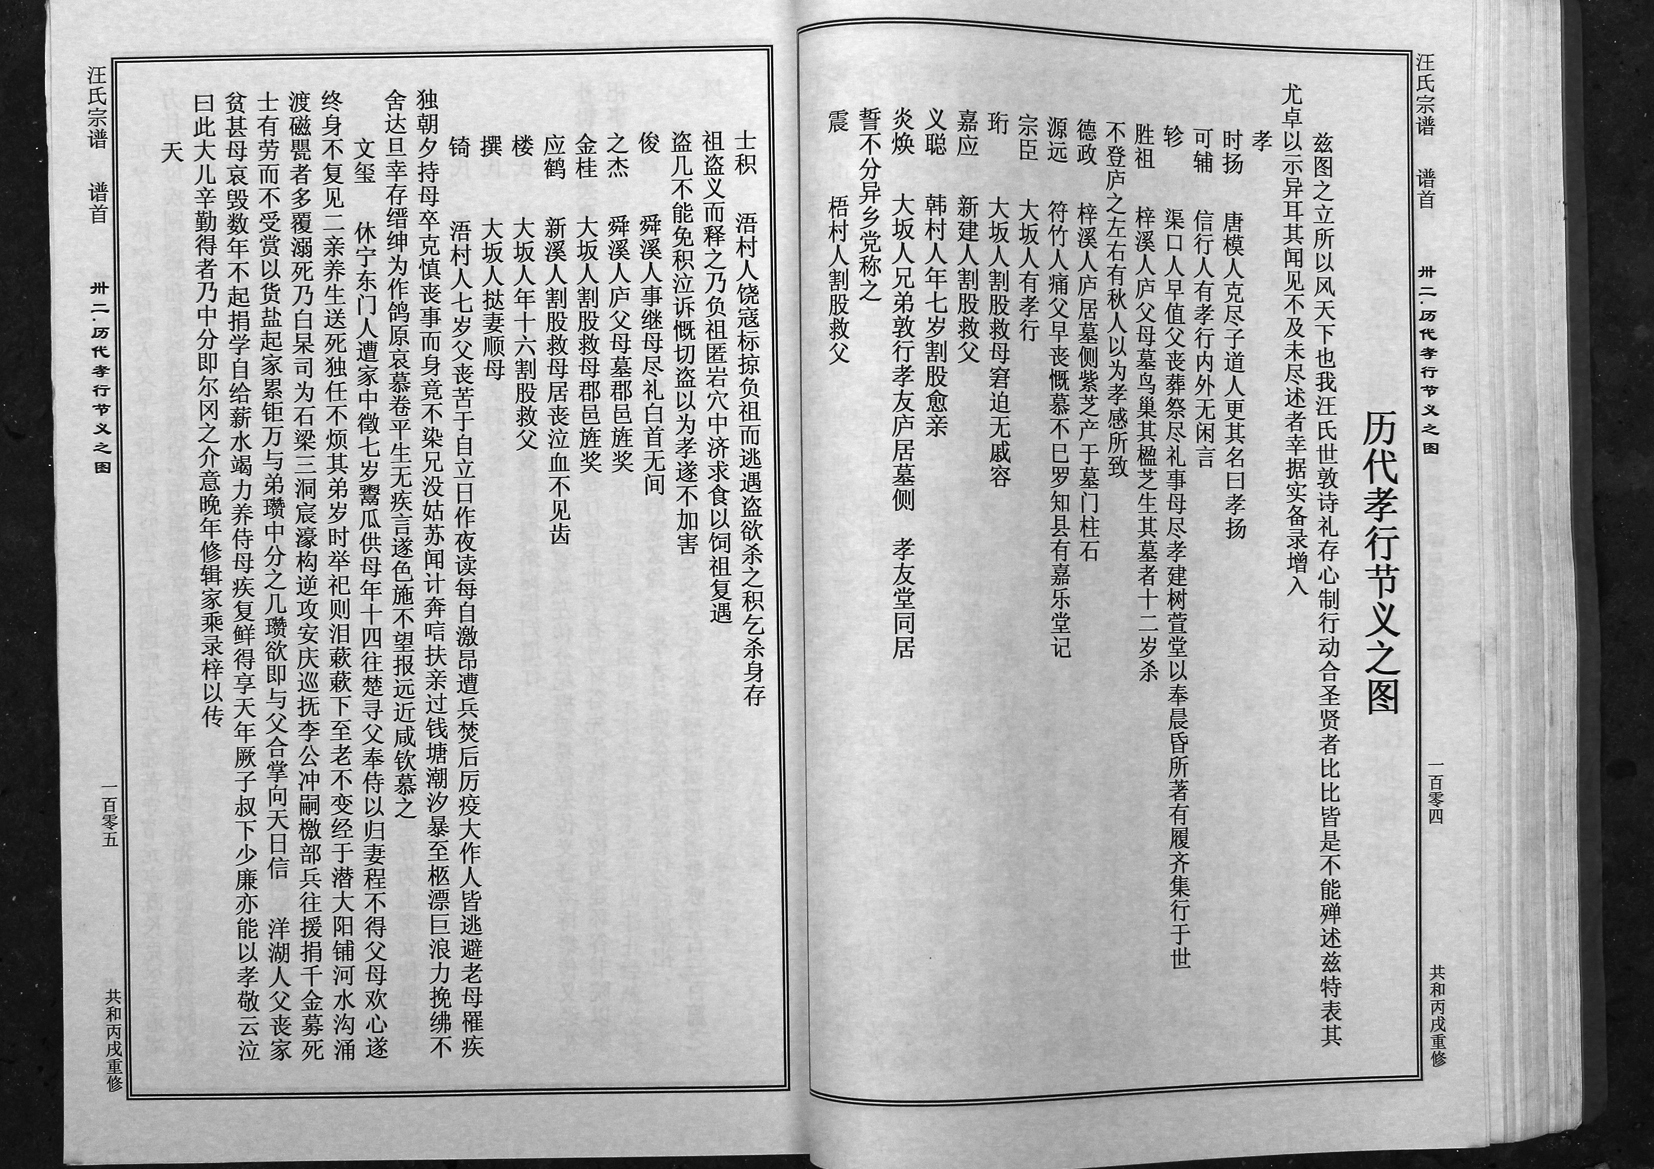 汪氏宗谱 谱首 卅二·历代孝行节义之图 一百零四 共和丙戌重修
历代孝行节义之图
兹图之立所以风天下也我汪氏世敦诗礼存心制行动合圣贤者比比皆是不能殚述兹特表其
尤卓以示异耳其闻见不及未尽述者幸据实备录增入
孝
时扬 唐模人克尽子道人更其名曰孝扬
可辅 信行人有孝行内外无闲言
轸 渠口人早值父丧葬祭尽礼事母尽孝建树萱堂以奉晨昏所著有履齐集行于世
胜祖 梓溪人庐父母墓鸟巢其楹芝生其墓者十二岁杀
不登庐之左右有秋人以为孝感所致
德政 梓溪人庐居墓侧紫芝产于墓门柱石
源远 符竹人痛父早丧慨慕不巳罗知县有嘉乐堂记
宗臣 大坂人有孝行
珩 大坂人割股救母窘迫无戚容
嘉应 新建人割股救父
义聪 韩村人年七岁割股愈亲
炎焕 大坂人兄弟敦行孝友庐居墓侧 孝友堂同居
誓不分异乡党称之
震 梧村人割股救父
士积 浯村人饶寇标掠负祖而逃遇盗欲杀之积乞杀身存
祖盗义而释之乃负祖匿岩穴中济求食以饲祖复遇
盗几不能免积泣诉慨切盗以为孝遂不加害
俊 舜溪人事继母尽礼白首无间
之杰 舜溪人庐父母墓郡邑旌奖
金桂 大坂人割股救母郡邑旌奖
应鹤 新溪人割股救母居丧泣血不见齿
楼 大坂人年十六割股救父
撰 大坂人挞妻顺母
锜 浯村人七岁父丧苦于自立日作夜读每自激昂遭兵焚后厉疫大作人皆逃避老母罹疾
独朝夕持母卒克慎丧事而身竟不染兄没姑苏闻计奔唁扶亲过钱塘潮汐暴至柩漂巨浪力挽绋不
舍达旦幸存缙绅为作鸽原哀慕卷平生无疾言遂色施不望报远近咸钦慕之
文玺 休宁东门人遭家中徵七岁鬻瓜供母年十四往楚寻父奉侍以归妻程不得父母欢心遂
终身不复见二亲养生送死独任不烦其弟岁时举祀则泪蔌蔌下至老不变经于潜大阳铺河水沟涌
渡磁甖者多覆溺死乃白杲司为石梁三洞宸濠构逆攻安庆巡抚李公冲嗣檄部兵往援捐千金募死
士有劳而不受赏以货盐起家累钜万与弟瓒中分之几瓒欲即与父合掌向天日信 洋湖人父丧家
贫甚母哀毁数年不起捐学自给薪水竭力养侍母疾复鲜得享天年厥子叔下少廉亦能以孝敬云泣
曰此大儿辛勤得者乃中分即尔冈之介意晚年修辑家乘录梓以传
天
汪氏宗谱 谱首 卅二·历代孝行节义之图 一百零五 共和丙戌重修